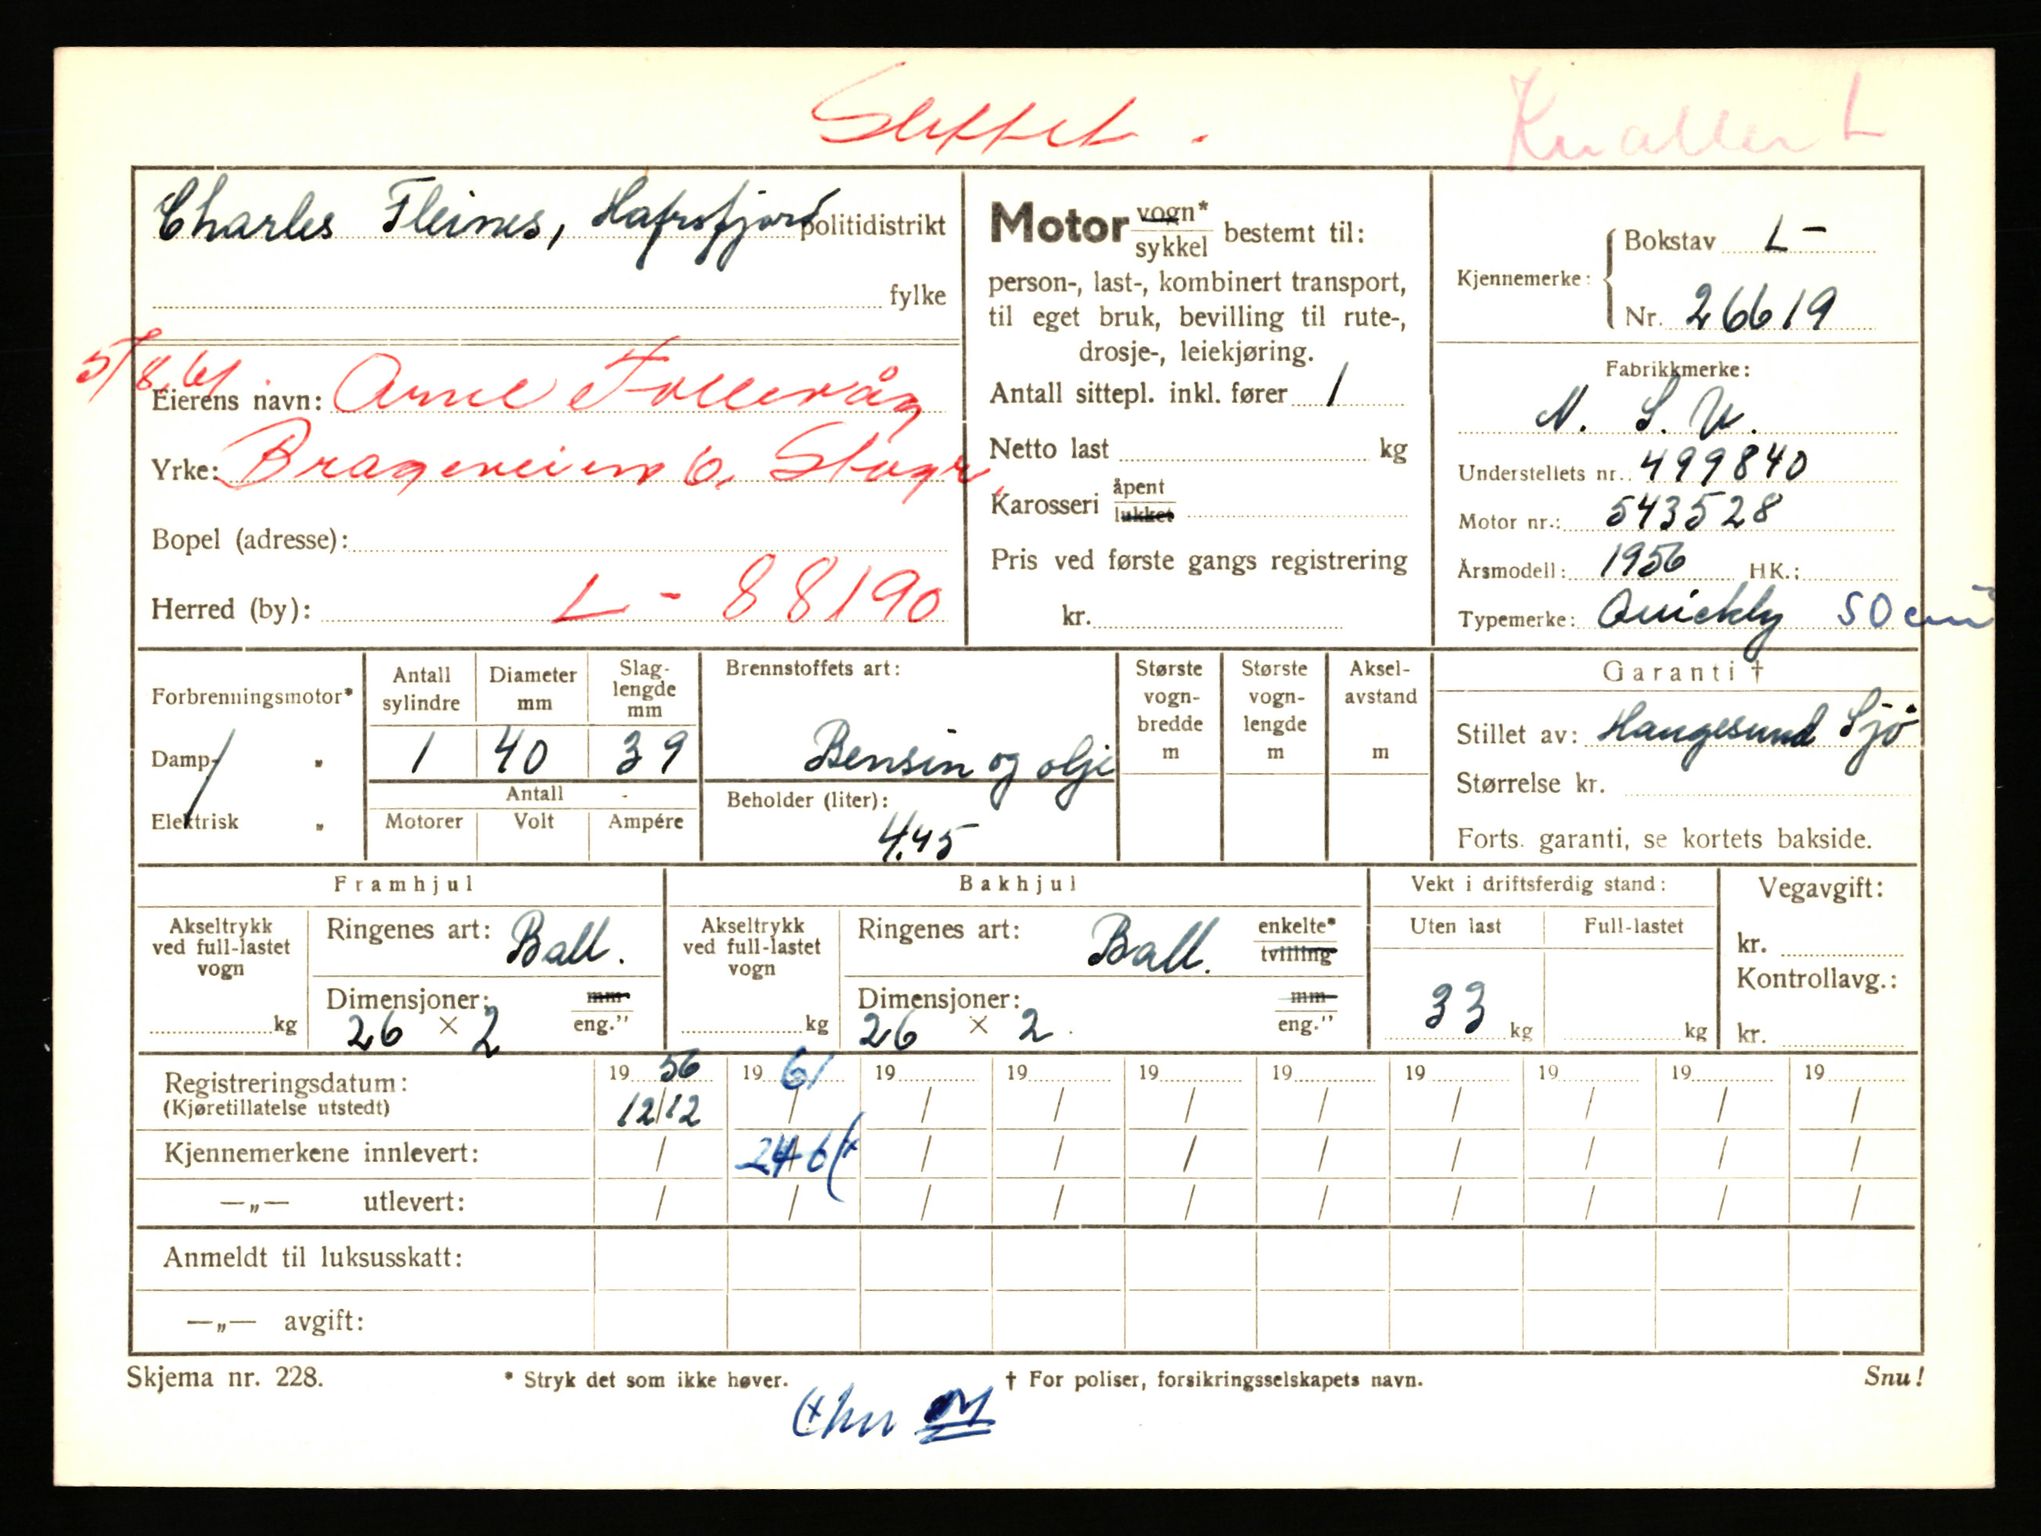 Slettet.
Knallert
Charles Fleines, Hafrsfjord politidistrikt
fylke
5/8.61.
Eierens navn: Arne Follevåg
Yrke: Brageveien 6. Stvgr.
Bopel (adresse):
Herred (by): L - 88190
Motor vogn*
sykkel bestemt til:
person-, last-, kombinert transport,
til eget bruk, bevilling til rute-,
drosje-, leiekjøring.
Antall sittepl. inkl. fører 1
Netto last kg
Karosseri åpent
lukket
Pris ved første gangs registrering
kr.
Kjennemerke:
Bokstav L-
Nr. 26619
Fabrikkmerke:
N. S. U.
Understellets nr.: 499840
Motor nr.: 543528
Årsmodell: 1956 HK.:
Typemerke: Quickly 50 cm³
Forbrenningsmotor*
Damp- „
Elektrisk „
Antall sylindre
Diameter mm
Slag-lengde mm
1 40 39
Antall
Motorer Volt Ampére
Brennstoffets art:
Bensin og olje
Beholder (liter):
4.45
Største vogn-bredde m
Største vogn-lengde m
Aksel-avstand m
Garanti †
Stillet av: Haugesund Sjø
Størrelse kr.
Forts. garanti, se kortets bakside.
Framhjul
Akseltrykk ved full-lastet vogn
kg
Ringenes art: Ball.
Dimensjoner: mm
26 × 2 eng.”
Bakhjul
Akseltrykk ved full-lastet vogn
kg
Ringenes art: Ball. enkelte*
tvilling
Dimensjoner: mm
26 × 2. eng.”
Vekt i driftsferdig stand:
Uten last Full-lastet
33 kg kg
Vegavgift:
kr.
Kontrollavg.:
kr.
Registreringsdatum: 19 56 19 61 19 19 19 19 19 19 19 19
(Kjøretillatelse utstedt) 12/12 / / / / / / / / /
Kjennemerkene innlevert: / 24/6 (x / / / / / / / /
—„— utlevert: / / / / / / / / / /
Anmeldt til luksusskatt:
—„— avgift:
Skjema nr. 228.
* Stryk det som ikke høver.
† For poliser, forsikringsselskapets navn.
Snu!